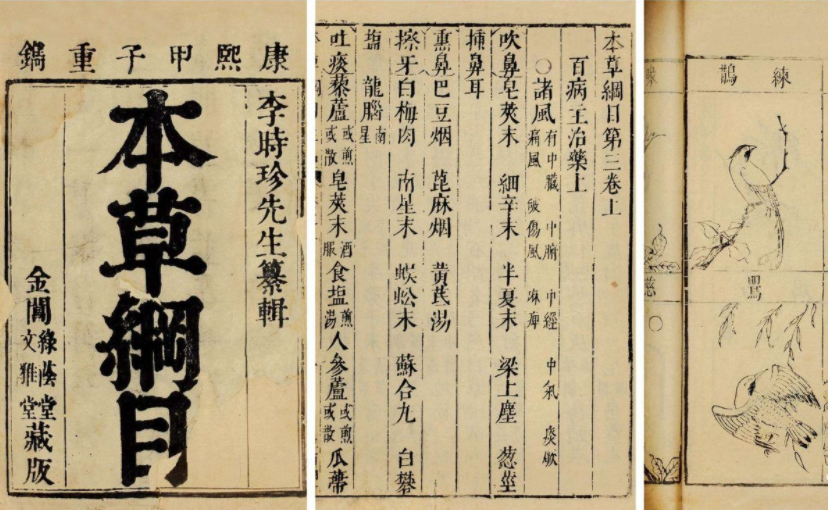 康熙甲子重鐫
李時珍先生纂輯
本草綱目
金閶綠蔭堂文雅堂藏版
本草綱目第三卷上
百病主治藥上
○諸風 有中臟 中腑 中經 中氣 痰厥 痛風 破傷風 麻痺
吹鼻皂莢末 細辛末 半夏末 梁上塵 葱莖
插鼻耳
熏鼻巴豆烟 萆麻烟 黄芪湯
擦牙白梅肉 南星末 蜈蚣末 蘇合丸 白礬
塩 龍腦南星
吐痰藜蘆或煎或散 皂莢末酒服 食塩煎湯 人參蘆或煎或散 瓜蔕
練鵲